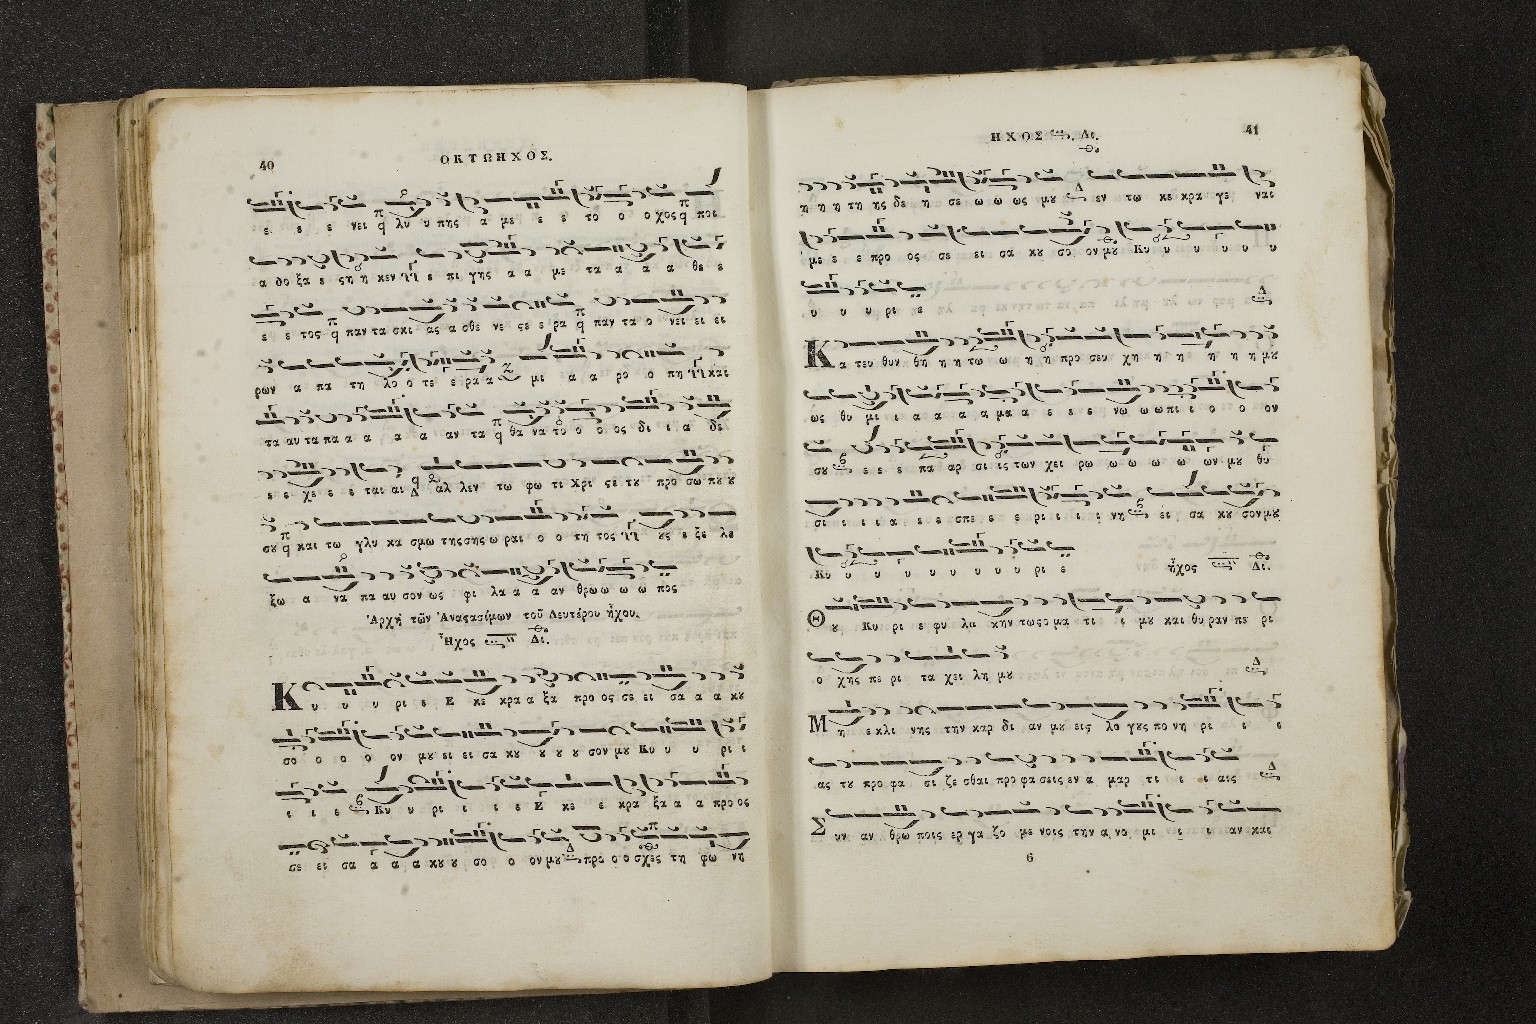 40
ΟΚΤΩΗΧΟΣ.
ε ε ε νει λυ υ πης α με ε ε το ο ο χος ποι
α δο ξα ε ςη η κεν ε πι γης α α με τα α α α θε ε
ε ε τος παν τα σκι ας α σθε νε ςε ε ρα παν τα ο νει ει ει
ρων α πα τη λο ο τε ε ρα α μι α α ρο ο πη και
τα αυ τα πα α α α α αν τα θα να το ο ο ος δι ι α δε
ε ε χε ε ε ται αι αλ λεν τω φω τι Χρι ςε τȣ προ σω πȣ ȣ
σȣ και τω γλυ κα σμω της σης ω ραι ο ο τη τος ȣς ε ξε λε
ξω α να παυ σον ως φι λα α α αν θρω ω ω ω πος
Ἀρχὴ τῶν Ἀναςασίμων τοῦ Δευτέρου ἤχου.
Ἦχος Δι.
Κ υ υ υ ρι ε Ε κε κρα α ξα προ ος σε ει σα α α κȣ
σο ο ο ο ον μȣ ει ει σα κȣ ȣ ȣ ȣ σον μȣ Κυ υ υ ρι ι
ι ι ε Κυ υ ρι ι ι ε Ε κε ε κρα ξα α α προ ος
σε ει σα α α α κȣ ȣ σο ο ον μȣ προ ο ο σχες τη φω νη
ΗΧΟΣ Δι.
41
η η η τη ης δε η σε ω ω ως μȣ εν τω κε κρα γε ναι
με ε ε προ ος σε ει σα κȣ σο ον μȣ Κυ υ υ υ υ υ
υ υ υ ρι ε
Κ α τευ θυν θη η η τω ω η η προ σευ χη η η η η η μȣ
ως θυ μι ι α α α α μα α ε ε ε νω ω ω πι ι ο ο ον
σȣ ε ε ε πα αρ σι ις των χει ρω ω ω ω ω ων μȣ θυ
σι ι ι ι α ε ε σπε ε ε ρι ι ι ι νη ει σα κȣ σον μȣ
Κυ υ υ υ υ υ υ υ υ ρι ε ἦχος Δι.
Θ ȣ Κυ ρι ε φυ λα κην τω ςο μα τι ι ι μȣ και θυ ραν πε ρι
ο χης πε ρι τα χει λη μȣ
Μ η ε κλι νης την καρ δι αν μȣ εις λο γȣς πο νη ρι ι ε
ας τȣ προ φα σι ζε σθαι προ φα σεις εν α μαρ τι ι ι αις
Σ υν αν θρω ποις ερ γα ζο με νοις την α νο μι ι ι αν και
6